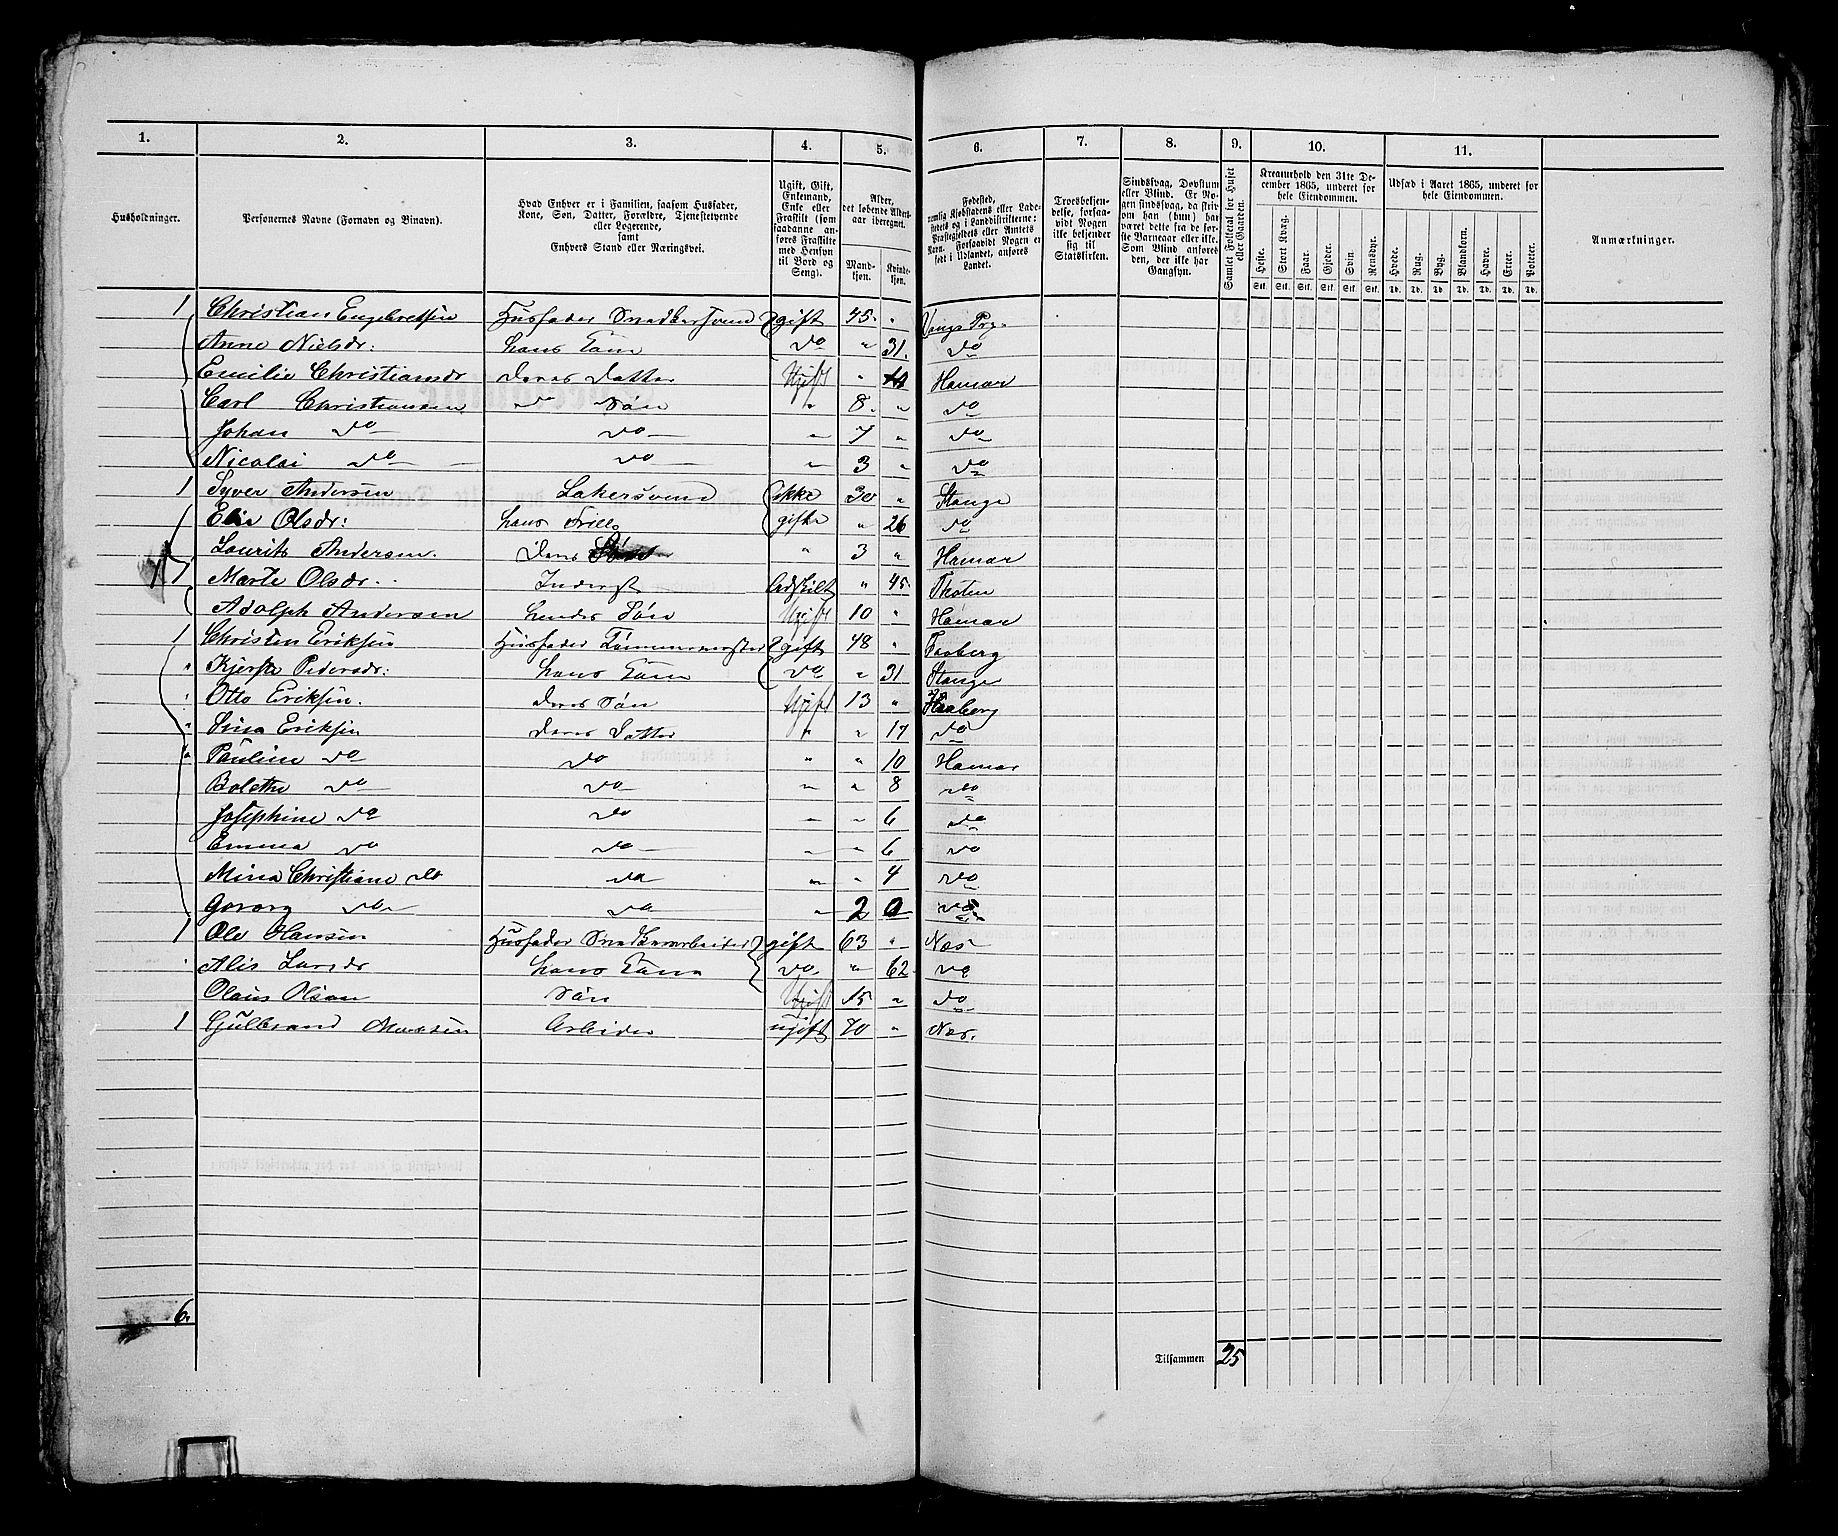 1. 2. 3. 4. 5. 6. 7. 8. 9. 10. 11.
Husholdninger.
Personernes Navne (Fornavn og Binavn).
Hvad Enhver er i Familien, saasom Husfader,
Kone, Søn, Datter, Forældre, Tjenestetyende
eller Logerende,
samt
Enhvers Stand eller Næringsvei.
Ugift, Gift,
Enkemand,
Enke eller
Fraskilt (som
saadanne an-
føres Fraskilte
med Hensyn
til Bord og
Seng).
Alder,
det løbende Alders-
aar iberegnet.
Mand-
kjøn.
Kvinde-
kjøn.
Fødested,
nemlig Kjøbstadens eller Lade-
stedets og i Landdistrikterne:
Præstegjeldets eller Amtets
Navn. Forsaavidt Nogen er
født i Udlandet, anføres
Landet.
Troesbekjen-
delse, forsaa-
vidt Nogen
ikke bekjender
sig til
Statskirken.
Sindssvag, Døvstum
eller Blind. Er No-
gen sindssvag, da skriv
om han (hun) har
været dette fra de før-
ste Barneaar eller ikke.
Som Blind anføres
den, der ikke har
Gangsyn.
Samlet Folketal for Huset
eller Gaarden.
Kreaturhold den 31te De-
cember 1865, underet for
hele Eiendommen.
Heste. Stort Kvæg. Faar. Gjeder. Svin. Rensdyr.
Stk. Stk. Stk. Stk. Stk. Stk.
Udsæd i Aaret 1865, underet for
hele Eiendommen.
Hvede. Rug. Byg. Blandkorn. Havre. Erter. Poteter.
Td. Td. Td. Td. Td. Td. Td.
Anmærkninger.
1 Christian Engebretsen Husfader Snedkersvend gift 45 " Vangs Prg.
Anne Nielsdr: hans Kone do " 31. do
Emilie Christiansdr deres Datter Ugift " Hamar
Carl Christiansen do Søn " 8. " do
Johan do do " 7 " do
Nicolai do do " 3 " do
1 Syver Andersen ikke 30 " Stange
Olsdr: hans gifte " 26 do
Laurits Andersen. deres Søn " 3 " Hamar
1 Marte Olsdr. Inderst Adskilt " 45. Thoten
Adolph Andersen hendes Søn Ugift 10 " Hamar
1 Christen Eriksen Husfader Tømmermester gift 48 " Faaberg
" Kjersti Pedersdr: hans Kone do " 31 Stange
" Otto Eriksen. deres Søn Ugift 13 " Faaberg
" Sina Eriksen deres Datter " " 17 do
" Pauline do do " " 10 Hamar
Bolethe do do " " 8 do
Josephine do do " " 6 do
Emma do do " " 6 do
Mina Christiane do do " " 4 do
do do " 2 0 do
1 Ole Hansen Husfader Snedkerarbeider gift 63 " Næs
Alis Larsdr hans Kone do. " 62 do
Olaus Olsen Søn Ugift 15 " do
1 Gulbrand Arbeider ugift 70 " Næs.
6.
Tilsammen 25